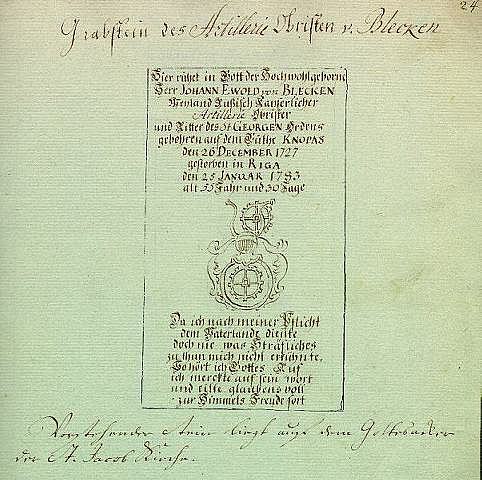 24.
Grabstein des Artillerie Obristen v. Blecken
Hier ruhet in Gott der Hochwohlgeborne
Herr JOHANN EWOLD von BLECKEN
Weyland Rußisch Kayserlicher
Artillerie Obrister
und Ritter des St GEORGEN Ordens
gebohren auf dem Guthe KNOPAS
den 26 DECEMBER 1727
gestorben in RIGA
den 25 JANUAR 1783
alt 55 Jahr und 30 Tage
Da ich nach meiner Pflicht
dem Vaterlande diente
doch nie was Sträfliches
zu thun mich nicht erkühnte.
So hört ich Gottes Ruf
ich merckte auf sein wort
und eilte glaubens voll
zur Himmels Freude fort
Vorstehender Stein liegt auf dem Gottesacker
der St. Jacob Kirche.